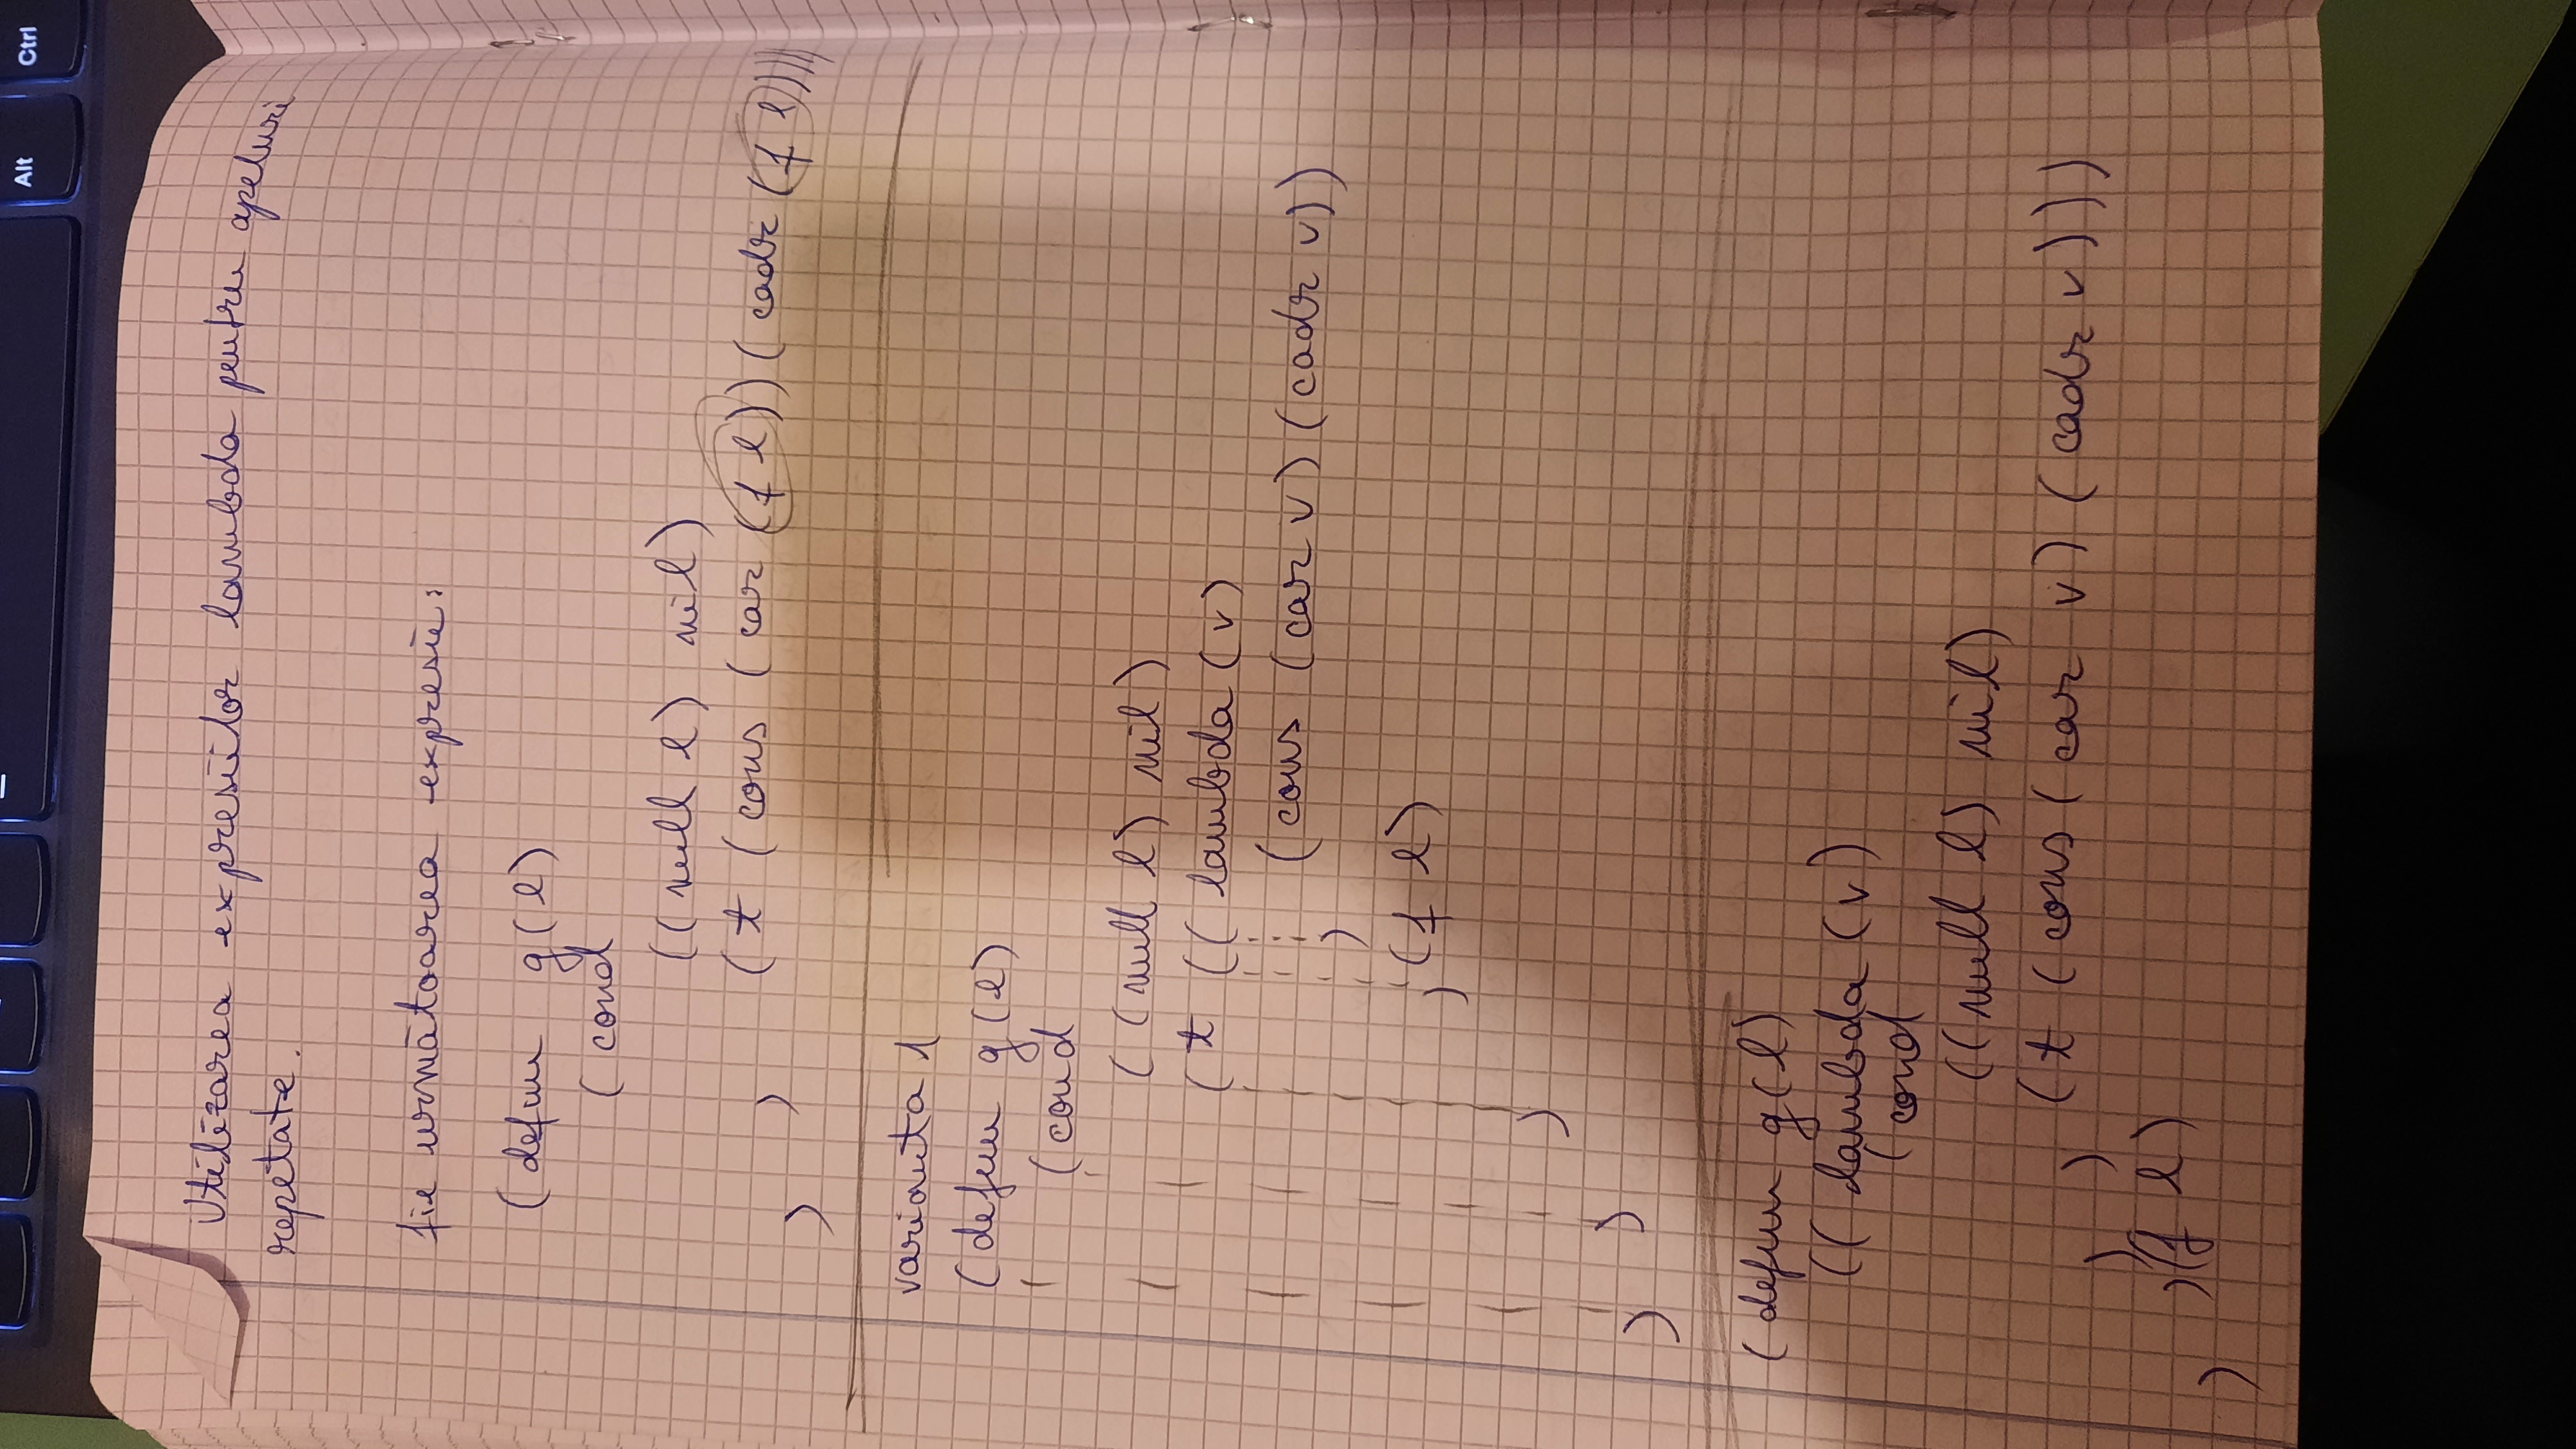 Alt Ctrl
Utilizarea expresiilor lambda pentru apeluri
repetate.
fie următoarea expresie:
(defun g(l)
(cond
((null l) nil)
(t (cons (car (f l))(cadr (f l))))
)
)
varianta 1
(defun g(l)
(cond
((null l) nil)
(t ((lambda (v)
(cons (car v) (cadr v))
)
(f l)
)
)
)
)
(defun g(l)
((lambda (v)
(cond
((null l) nil)
(t (cons (car v) (cadr v)))
)
)
(f l)
)
)